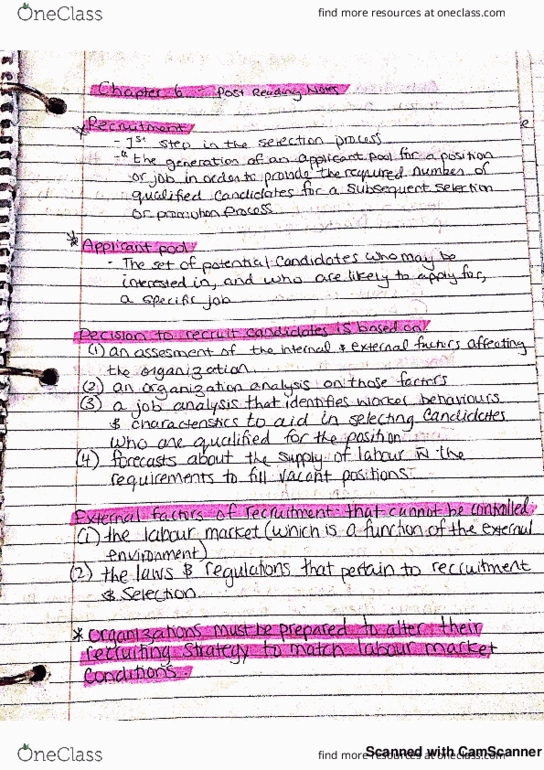 OneClass
find more resources at oneclass.com
Chapter 6 - Post Reading Notes
* Recruitment
- 1st step in the selection process
- " the generation of an applicant pool for a position
or job in order to provide the required number of
qualified candidates for a subsequent selection
or promotion process
* Applicant pool
- The set of potential candidates who may be
interested in, and who are likely to apply for,
a specific job
Decision to recruit candidates is based on
(1) an assesment of the internal & external factors affecting
the organization
(2) an organization analysis on those factors
(3) a job analysis that identifies worker behaviours
& characteristics to aid in selecting candidates
who are qualified for the position
(4) forecasts about the supply of labour in the
requirements to fill vacant positions.
External factors of recruitment that cannot be controlled:
(1) the labour market (which is a function of the external
environment)
(2) the laws & regulations that pertain to recruitment
& selection
* Organizations must be prepared to alter their
recruiting strategy to match labour market
conditions.
OneClass
find more resources at oneclass.com
Scanned with CamScanner